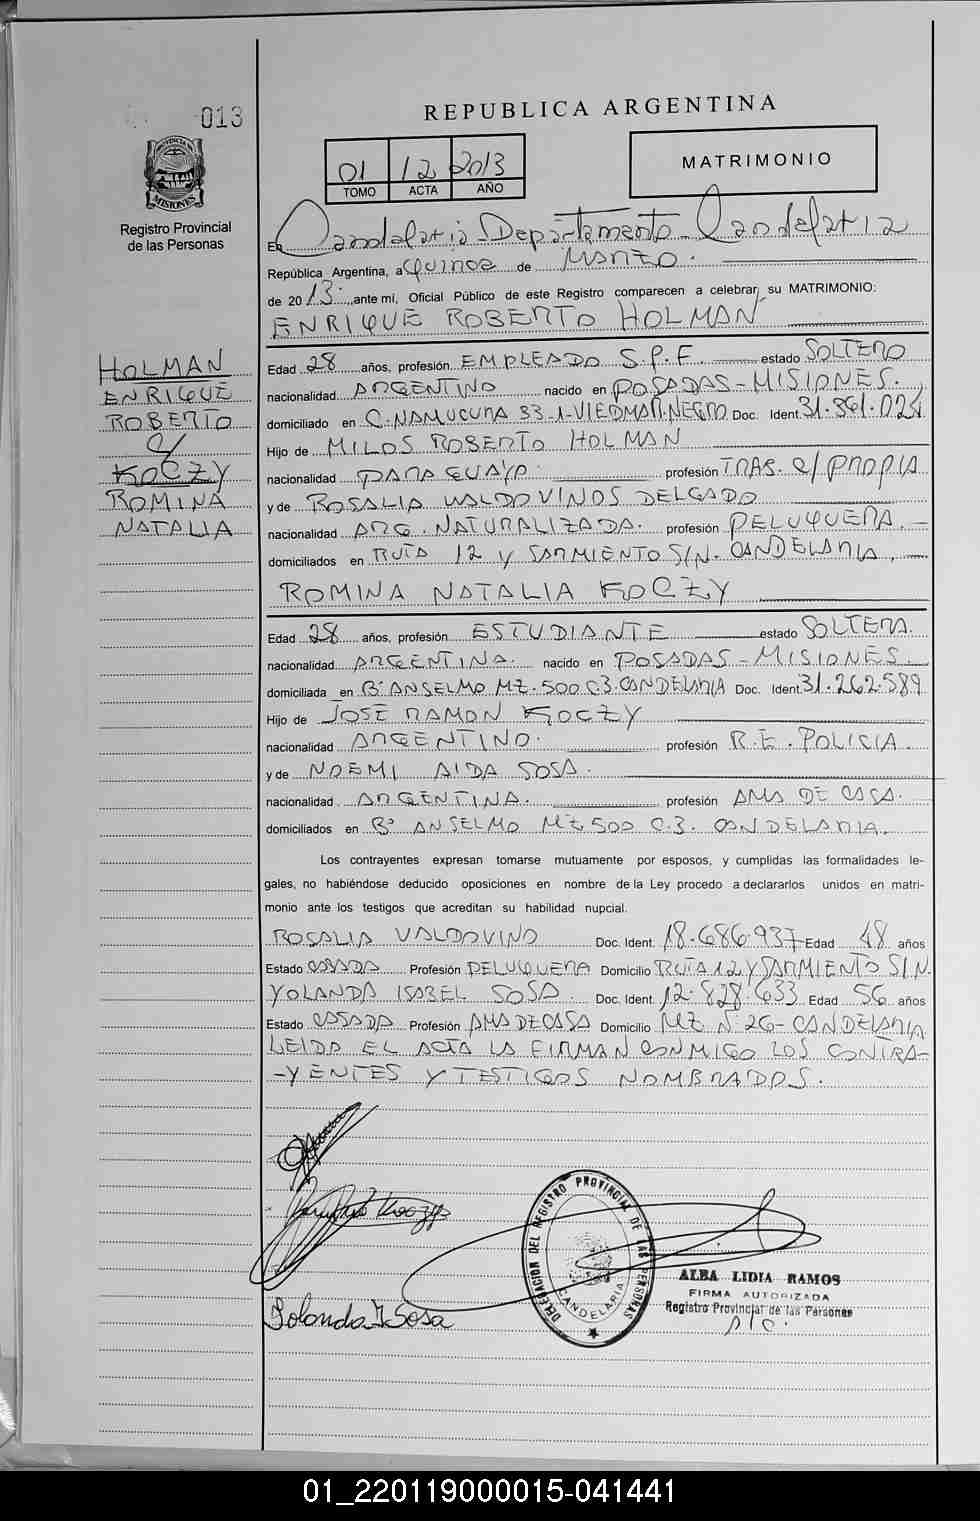 013
REPUBLICA ARGENTINA
01 12 2013
TOMO ACTA AÑO
MATRIMONIO
PROVINCIA DE
MISIONES
Registro Provincial
de las Personas
En Candelaria - Departamento - Candelaria
República Argentina, a quince de MARZO.
de 2013. ,ante mí, Oficial Público de este Registro comparecen a celebrar su MATRIMONIO:
ENRIQUE ROBERTO HOLMAN
HOLMAN
ENRIQUE
ROBERTO
C/
KOCZY
ROMINA
NATALIA
Edad 28 años, profesión EMPLEADO S.P.F. estado SOLTERO
nacionalidad ARGENTINO nacido en POSADAS - MISIONES.
domiciliado en C. NAMUCURA 33-1-VIEDMA R. NEGRO Doc. Ident. 31.361.021
Hijo de MILOS ROBERTO HOLMAN
nacionalidad PARAGUAYO. profesión TRAB. C/ PROPIA
y de ROSALIA VALDOVINOS DELGADO
nacionalidad ARG. NATURALIZADA. profesión PELUQUERA. -
domiciliados en RUTA 12 Y SARMIENTO S/N. CANDELARIA,
ROMINA NATALIA KOCZY
Edad 28 años, profesión ESTUDIANTE estado SOLTERA.
nacionalidad ARGENTINA. nacido en POSADAS - MISIONES.
domiciliada en B° ANSELMO MZ. 500 C.3. CANDELARIA Doc. Ident. 31.262.589
Hijo de JOSÉ RAMON KOCZY
nacionalidad ARGENTINO. profesión R.E. POLICIA.
y de NOEMI AIDA SOSA.
nacionalidad ARGENTINA. profesión AMA DE CASA.
domiciliados en B° ANSELMO MZ 500 C.3. CANDELARIA.
Los contrayentes expresan tomarse mutuamente por esposos, y cumplidas las formalidades le-
gales, no habiéndose deducido oposiciones en nombre de la Ley procedo a declararlos unidos en matri-
monio ante los testigos que acreditan su habilidad nupcial.
ROSALIA VALDOVINO Doc. Ident. 18.686.937 Edad 48 años
Estado CASADA Profesión PELUQUERA Domicilio RUTA 12 Y SARMIENTO S/N.
YOLANDA ISABEL SOSA. Doc. Ident. 12.828.633 Edad 56 años
Estado CASADA Profesión AMA DE CASA Domicilio MZ N° 26 - CANDELARIA
LEIDA EL ACTA LA FIRMAN CONMIGO LOS CONTRA-
-YENTES Y TESTIGOS NOMBRADOS.
Koczy
Yolanda I. Sosa
DELEGACION DEL REGISTRO PROVINCIAL DE LAS PERSONAS
CANDELARIA
ALBA LIDIA RAMOS
FIRMA AUTORIZADA
Registro Provincial de las Personas
01_220119000015-041441